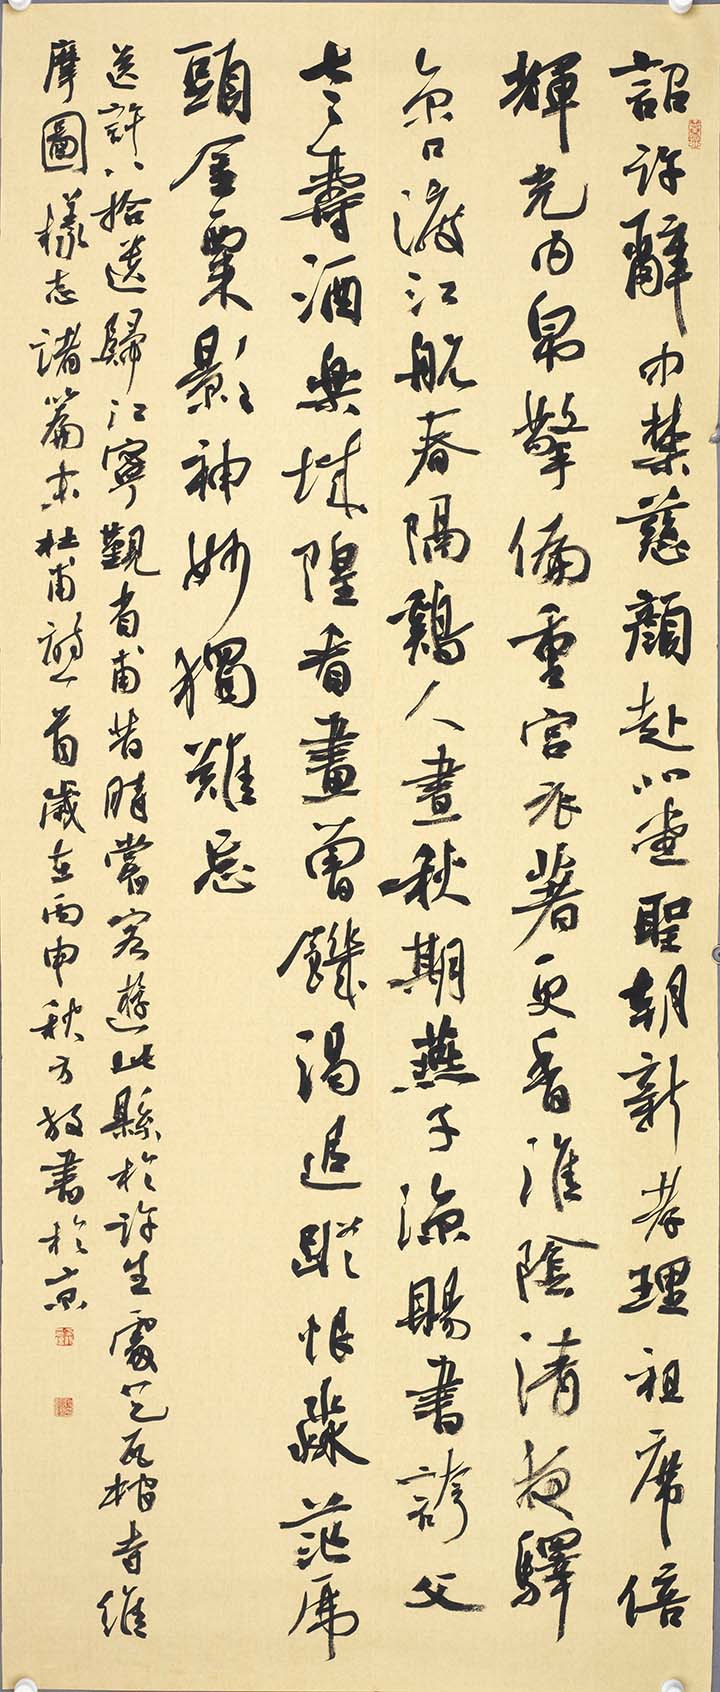 詔許辭中禁慈顏赴北堂聖朝新孝理祖席倍
輝光內帛擎偏重宮衣著更香淮陰清夜驛
京口渡江航春隔鷄人晝秋期燕子涼賜書誇父
老壽酒樂城隍看畫曾饑渴追蹤恨淼茫虎
頭金粟影神妙獨難忘
送許八拾遺歸江寧覲省甫昔時嘗客遊此縣於許生處乞瓦棺寺維
摩圖樣志諸篇末杜甫詩一首歲在丙申秋方放書於京